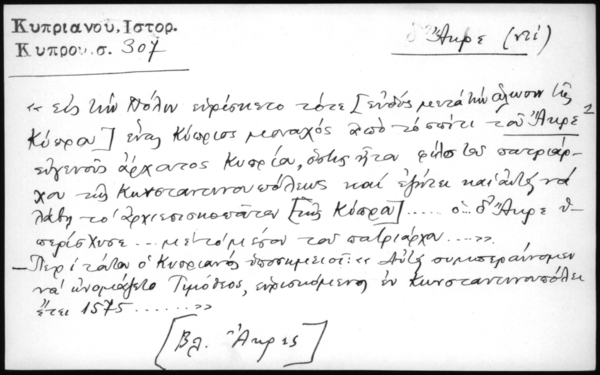 Κυπριανού, Ιστορ.
Κύπρου, σ. 307
δ' Ἄκρε (ντὶ)
« εἰς τὴν Πόλιν εὑρίσκετο τότε [εὐθὺς μετὰ τὴν ἅλωσιν τῆς
Κύπρου] ἕνας Κύπριος μοναχὸς ἀπὸ τὸ σπίτι τοῦ Ἄκρε
εὐγενοῦς ἄρχοντος Κυπρίου, ὅστις ἦτο φίλος τοῦ πατριάρ-
χου τῆς Κωνσταντινουπόλεως καὶ ἐζήτει καὶ αὐτὸς νὰ
λάβῃ τὸ ἀρχιεπισκοπᾶτον [τῆς Κύπρου] ..... ὁ δ' Ἄκρε ὑ-
περίσχυσε ... μὲ τὸ μέσον τοῦ πατριάρχου ... ».
— Περὶ τούτου ὁ Κυπριανὸς ὑποσημειοῖ: « Αὐτὸς συμπεραίνομεν
νὰ ὠνομάζετο Τιμόθεος, εὑρισκόμενος ἐν Κωνσταντινουπόλει
ἔτει 1575 ....... »
[Βλ. Ἄκρες]